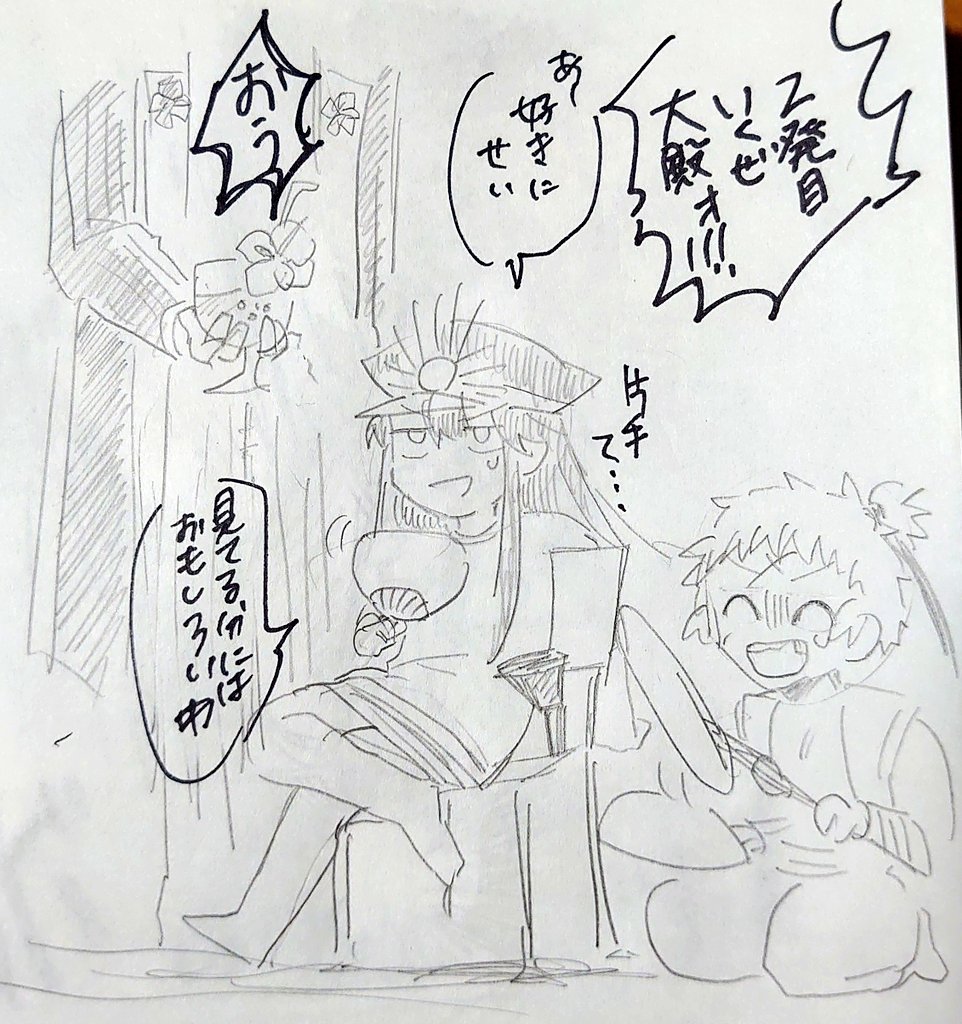 2発目
いくぜ
大殿オ!!!
あー
好きに
せい
おうっ
片手
で…
見てる分には
おもしろいわ